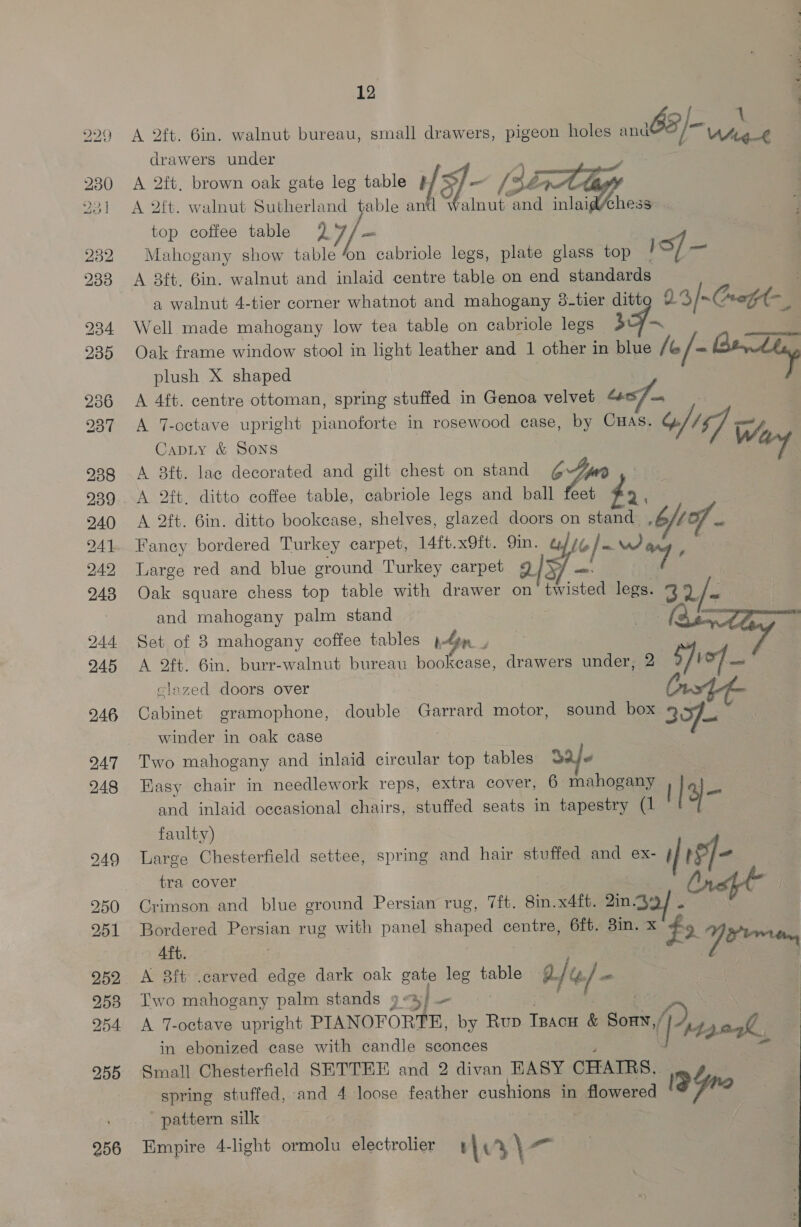 12
229 A 2ft. 6in. walnut bureau, small drawers, pigeon holes and 63/-
drawers under
230 A 2ft. brown oak gate leg table
231 A 2ft. walnut Sutherland table and walnut and inlaid chess
top coffee table 27/-
232 Mahogany show table on cabriole legs, plate glass top 15/-
233 A 3ft. 6in. walnut and inlaid centre table on end standards
a walnut 4-tier corner whatnot and mahogany 3-tier ditto 23/-
234 Well made mahogany low tea table on cabriole legs
235 Oak frame window stool in light leather and 1 other in blue 16/-
plush X shaped
236 A 4ft. centre ottoman, spring stuffed in Genoa velvet
237 A 7-octave upright pianoforte in rosewood case, by CHAS. Way
CAPLY & SONS
238 A 3ft. lac decorated and gilt chest on stand 6 gns
239 A 2ft. ditto coffee table, cabriole legs and ball feet £2,
240 A 2ft. 6in. ditto bookcase, shelves, glazed doors on stand 6/10/-
241 Fancy bordered Turkey carpet, 14ft.x9ft. 9in. Way
242 Large red and blue ground Turkey carpet
243 Oak square chess top table with drawer on twisted legs. 32/-
and mahogany palm stand
244 Set of 3 mahogany coffee tables
245 A 2ft. 6in. burr-walnut bureau bookcase, drawers under, 2
glazed doors over
246 Cabinet gramophone, double Garrard motor, sound box
winder in oak case
247 Two mahogany and inlaid circular top tables 32/-
248 Easy chair in needlework reps, extra cover, 6 mahogany
and inlaid occasional chairs, stuffed seats in tapestry (1
faulty)
249 Large Chesterfield settee, spring and hair stuffed and ex-
tra cover
250 Crimson and blue ground Persian rug, 7ft. 8in.x4ft. 2in. 32/-
251 Bordered Persian rug with panel shaped centre, 6ft. 3in. x £2
4ft.
252 A 3ft carved edge dark oak gate leg table
253 Two mahogany palm stands
254 A 7-octave upright PIANOFORTE, by RUD IBACH & SOHN,
in ebonized case with candle sconces
255 Small Chesterfield SETTEE and 2 divan EASY CHAIRS.
spring stuffed, and 4 loose feather cushions in flowered
pattern silk
256 Empire 4-light ormolu electrolier